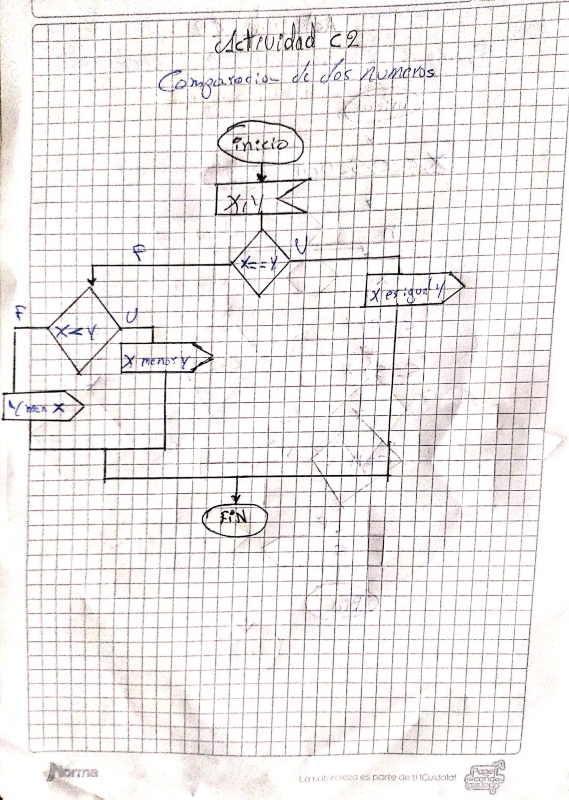 Actividad C2
Comparacion de dos numeros
inicio
X,Y
X==Y
F
V
X es igual Y
X<Y
F
V
X menor Y
Y men X
FiN
Norma
La naturaleza es parte de ti ¡Cuídala!